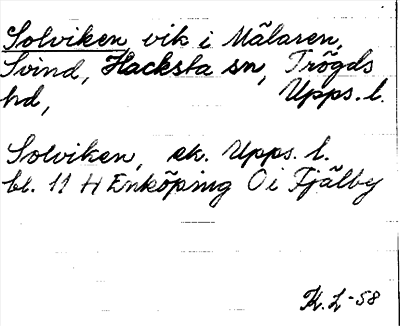 Solviken vik i Mälaren,
Svind, Hacksta sn, Trögds
hd, Upps. l.
Solviken, ek. Upps. l.
bl. 11 H Enköping O i Fjälby
K. L -58